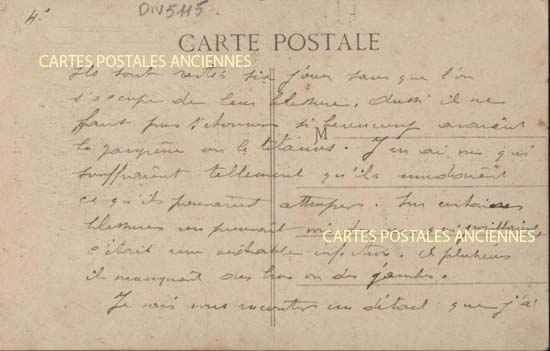 4.°
DIV5115
CARTES POSTALES ANCIENNES
CARTE POSTALE
Ils sont restés six jours sans que l'on
s'occupe de leur blessure. Aussi il ne
faut pas s'étonner si beaucoup avaient
M
la gangrène ou le tétanos. J'en ai vus qui
souffraient tellement qu'ils mordaient
ce qu'ils pouvaient attraper. Sur certaines
blessures on pouvait voir
CARTES POSTALES ANCIENNES
c'était une véritable infection. Et plusieurs
il manquait des bras ou des jambes.
Je vais vous raconter un détail que j'ai